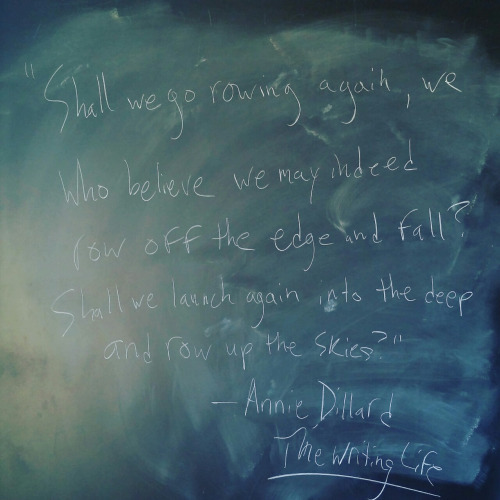 "Shall we go rowing again, we
who believe we may indeed
row off the edge and fall?
Shall we launch again into the deep
and row up the skies?"
— Annie Dillard
The Writing Life